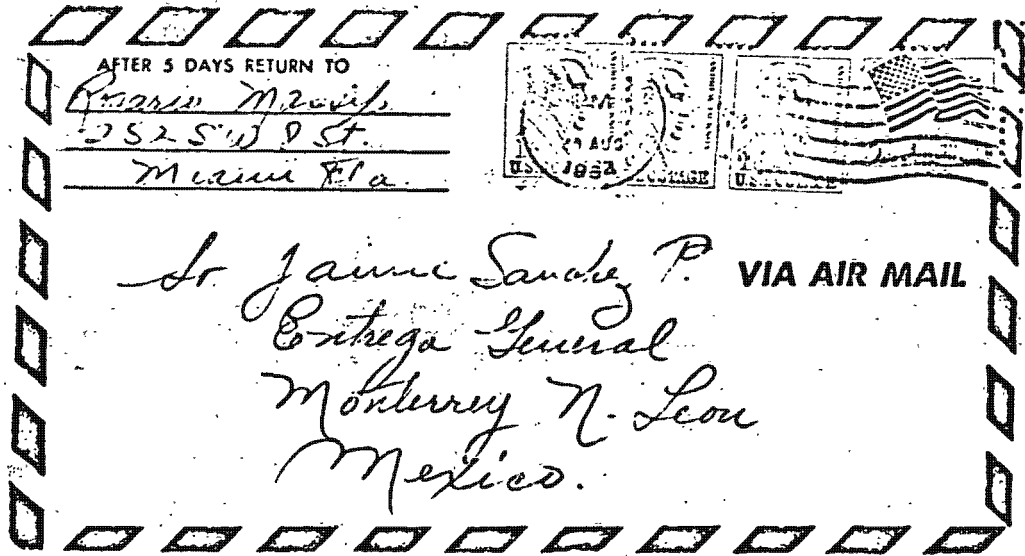 AFTER 5 DAYS RETURN TO
Rosario
St.
Miami Fla.
AUG
U.S. POSTAGE
U.S. POSTAGE
Sr Jaime Sanchez P.
VIA AIR MAIL
Entrega General
Monterrey N. Leon
Mexico.